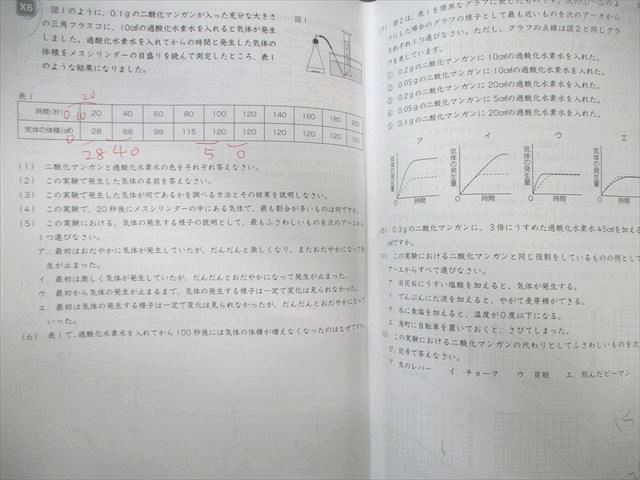 X6
図1のように、0.1gの二酸化マンガンが入った充分な大きさ
の三角フラスコに、10㎤の過酸化水素水を入れると気体が発生
しました。過酸化水素水を入れてからの時間と発生した気体の
体積をメスシリンダーの目盛りを読んで測定したところ、表1
のような結果になりました。
図1
表1
20
時間(秒) 0 10 20 40 60 80 100 120 140 160 180 200
気体の体積(㎤) 0 28 68 99 115 120 120 120 120 120 120
28 40 5 0
(1) 二酸化マンガンと過酸化水素水の色をそれぞれ答えなさい。
(2) この実験で発生した気体の名前を答えなさい。
(3) この実験で発生した気体が何であるかを調べる方法とその結果を説明しなさい。
(4) この実験で、20秒後にメスシリンダーの中にある気体で、最も割合が多いものは何ですか。
(5) この実験における、気体の発生する様子の説明として、最もふさわしいものを次のア〜エから
1つ選びなさい。
ア. 最初はおだやかに気体が発生していたが、だんだんと激しくなり、またおだやかになって発
生が止まった。
イ. 最初は激しく気体が発生していたが、だんだんとおだやかになって発生が止まった。
ウ. 最初から気体の発生が止まるまで、気体の発生する様子は一定で変化は見られなかった。
エ. 最初は気体の発生する様子は一定で変化は見られなかったが、だんだんとおだやかになって
いった。
(6) 表1で、過酸化水素水を入れてから100秒後には気体の体積が増えなくなったのはなぜですか
(7) 図2は、表1を簡単なグラフに表したものです。次の①〜⑤のよ
うにした場合のグラフの様子として最も近いものを次のア〜オから
それぞれ1つ選びなさい。ただし、グラフの点線は図2と同じグラ
フを表しています。
① 0.2gの二酸化マンガンに10㎤の過酸化水素水を入れた。
② 0.05gの二酸化マンガンに10㎤の過酸化水素水を入れた。
③ 0.2gの二酸化マンガンに20㎤の過酸化水素水を入れた。
④ 0.05gの二酸化マンガンに5㎤の過酸化水素水を入れた。
⑤ 0.1gの二酸化マンガンに20㎤の過酸化水素水を入れた。
ア イ ウ エ
気体の発生量 気体の発生量 気体の発生量 気体の発生量
0 時間 0 時間 0 時間 0 時間
(8) 0.3gの二酸化マンガンに、3倍にうすめた過酸化水素水45㎤を加える
㎤ですか。
(9) この実験における二酸化マンガンと同じ役割をしているものの例として
ア〜エからすべて選びなさい。
ア. 石灰石にうすい塩酸を加えると、気体が発生する。
イ. てんぷんにだ液を加えると、やがて麦芽糖ができる。
ウ. 氷に食塩を加えると、温度が0度以下になる。
エ. 港町に自転車を置いておくと、さびてしまった。
10 この実験における二酸化マンガンの代わりとしてふさわしいものを次
び、記号で答えなさい。
ア. 生のレバー イ. チョーク ウ. 貝殻 エ. 刻んだピーマン